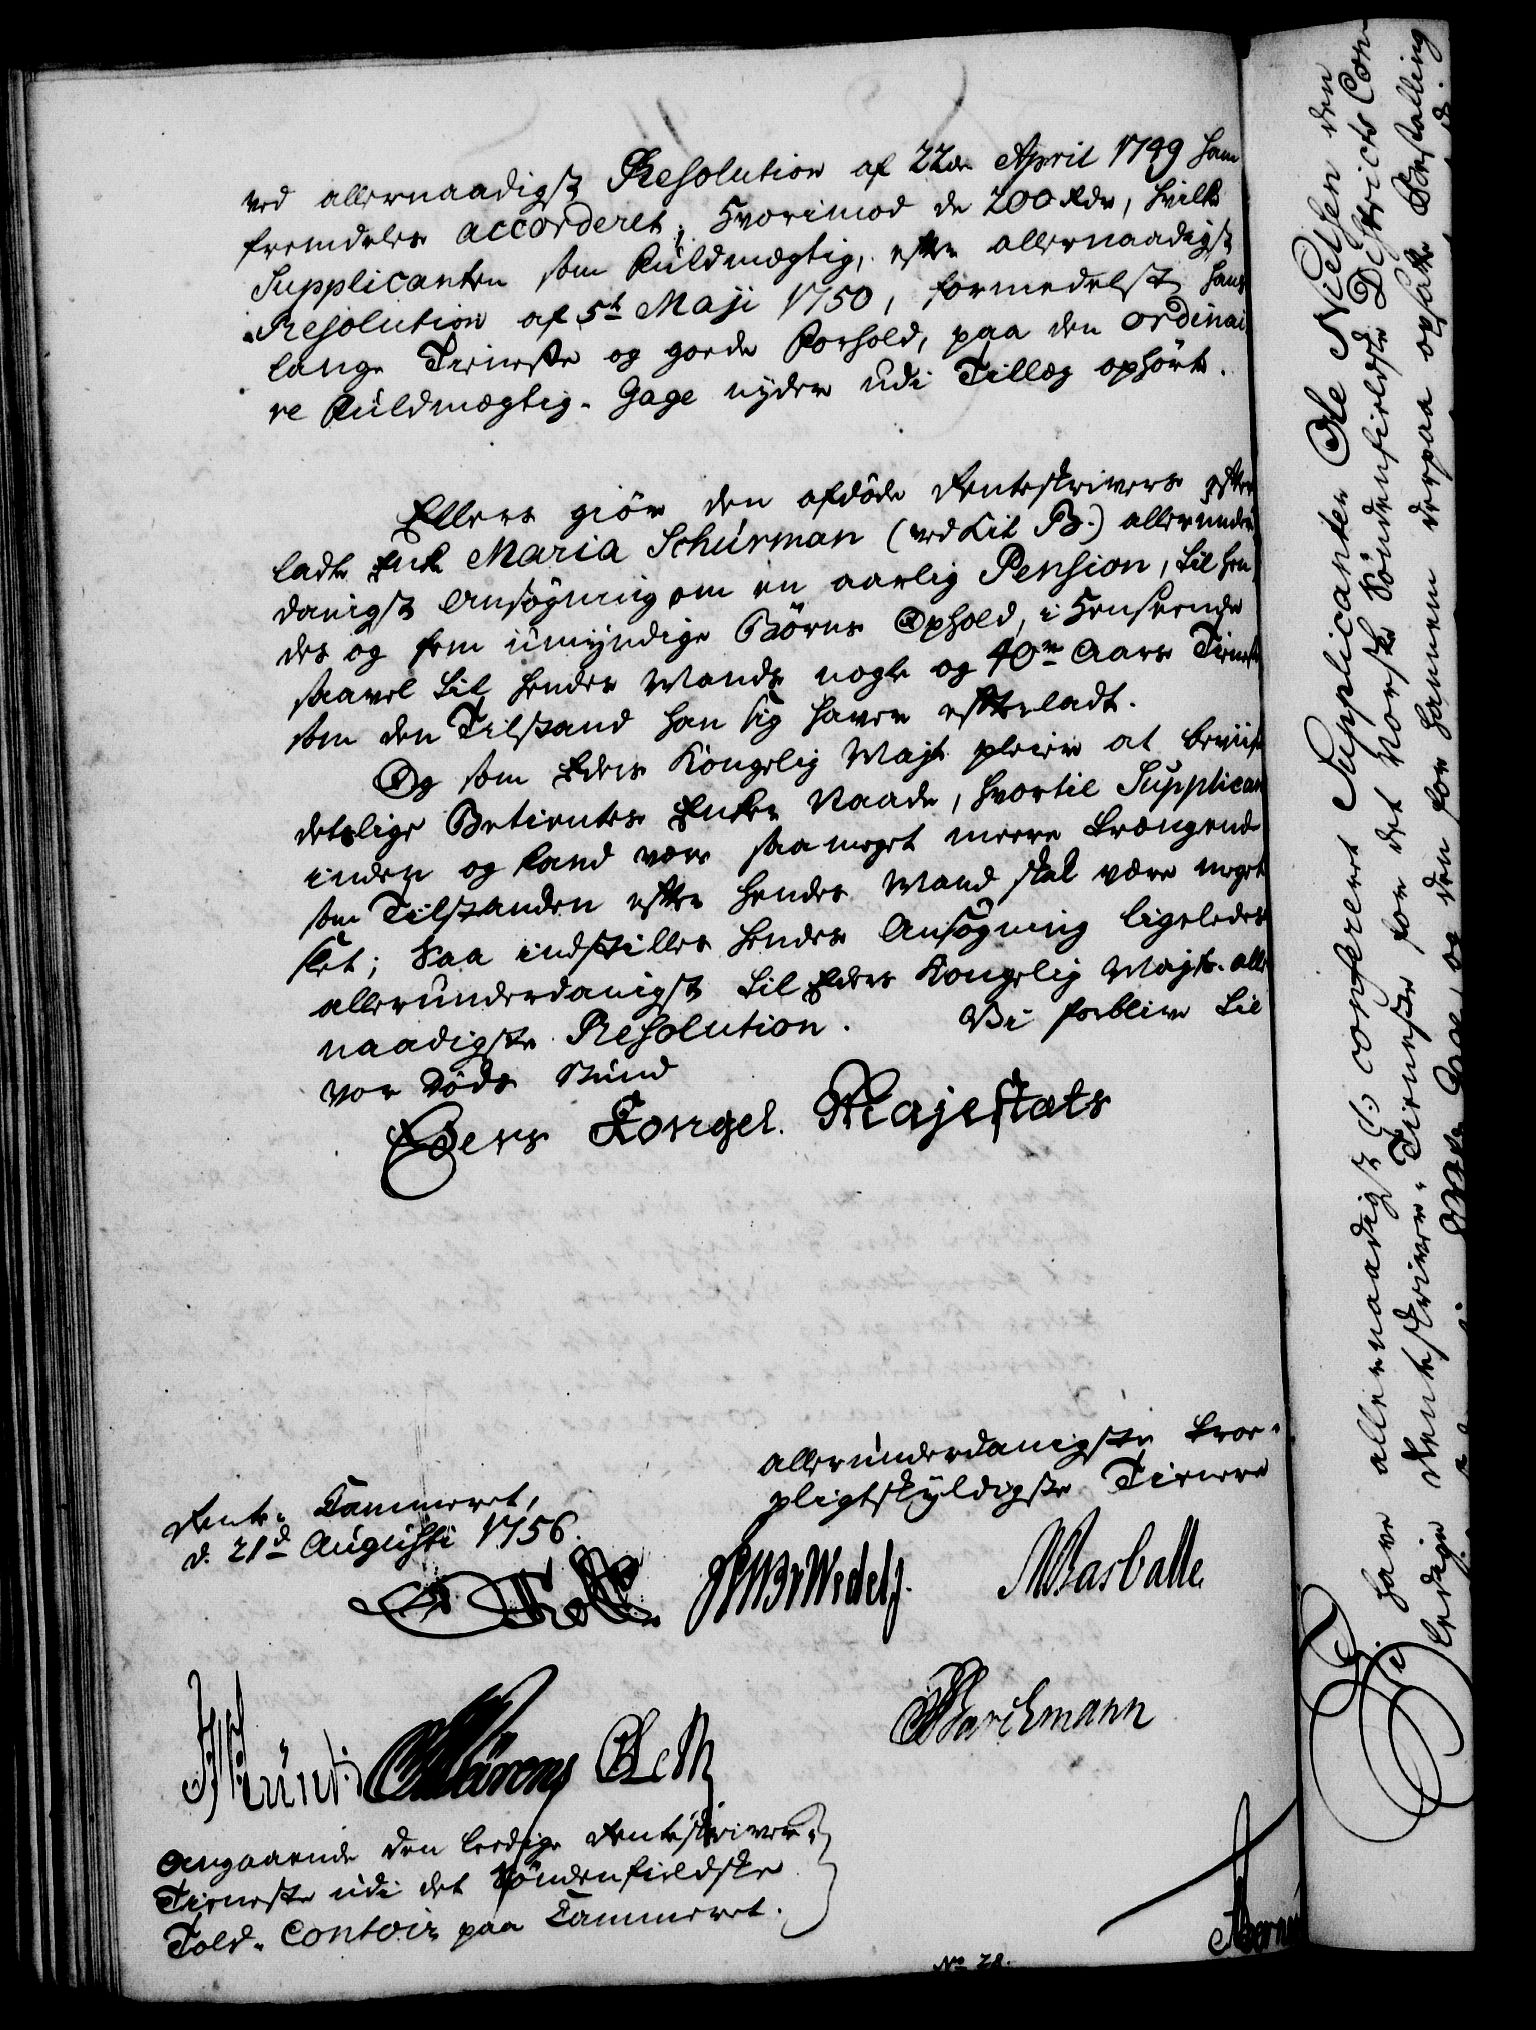 ved allernaadigst Resolution af 22de April 1749 ham
fremdeles accorderet; Hvorimod de 200 Rdr, hvilke
Supplicanten som Fuldmægtig, efter allernaadigst
Resolution af 5t Maji 1750, formedelst hans
lange Tieneste og gode Forhold, paa den ordinai
re Fuldmægtig-Gage nyder udi Tillæg ophörte.
Ellers giör den afdöde Renteskrivers efter
ladte Enke Maria Schurman (ved Lit B.) allerunder
danigst Ansögning om en aarlig Pension, til hen
des og fem umyndige Börns Ophold, i Henseende
saavel til hendes Mands nogle og 40ve Aars Tieneste
som den Tilstand han sig haver efterladt.
Og som Eders Kongelig Mayt. pleier at beviise
deslige Betientes Enker Naade, hvortil Supplican
inden og kand være saa meget meere trængende
som Tilstanden efter hendes Mand skal være meget
slet; Saa indstilles hendes Ansögning ligeledes
allerunderdanigst til Eders Kongelig Mayts. aller
naadigste Resolution. Vi forblive til
vor Döds Stund
Eders Kongel. Majestæts
allerunderdanigste troe-
pligtskyldigste Tienere
Rente-Cammeret,
d. 21d Augusti 1756.
HHBvWedelj.
MBasballe
Barchmann
Angaaende den leedige Renteskriver-
Tieneste udi det Söndenfieldske
Told-Contoir paa Cammeret.
No 28.
Vi have allernaadigst confereret Supplicanten Ole Nielsen den
ledige Renteskriver-Tieneste for det Norske Söndenfieldske Districts Con
og den for hannem derpaa opsatte Bestalling